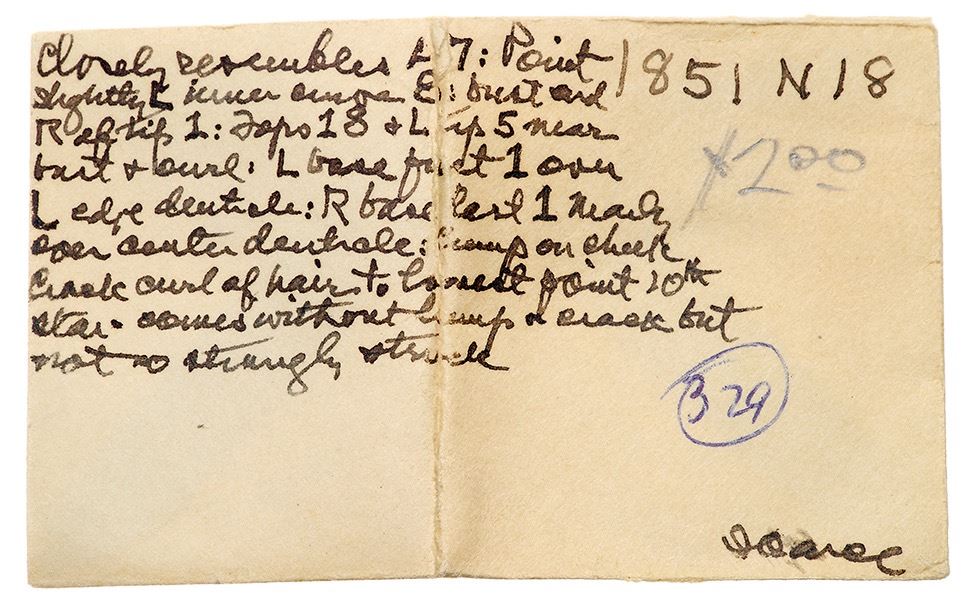 Closely resembles N 7: Point
slightly L inner curve 8: bust and
R of tip 1: Tops 1 8 & L tip 5 near
bust & curl: L base first 1 over
L edge denticle: R base last 1 nearly
over center denticle: Lump on cheek
Crack curl of hair to lowest point 10th
star. comes without lump & crack but
not so strongly struck
1851 N 18
$2.00
329
Scarce